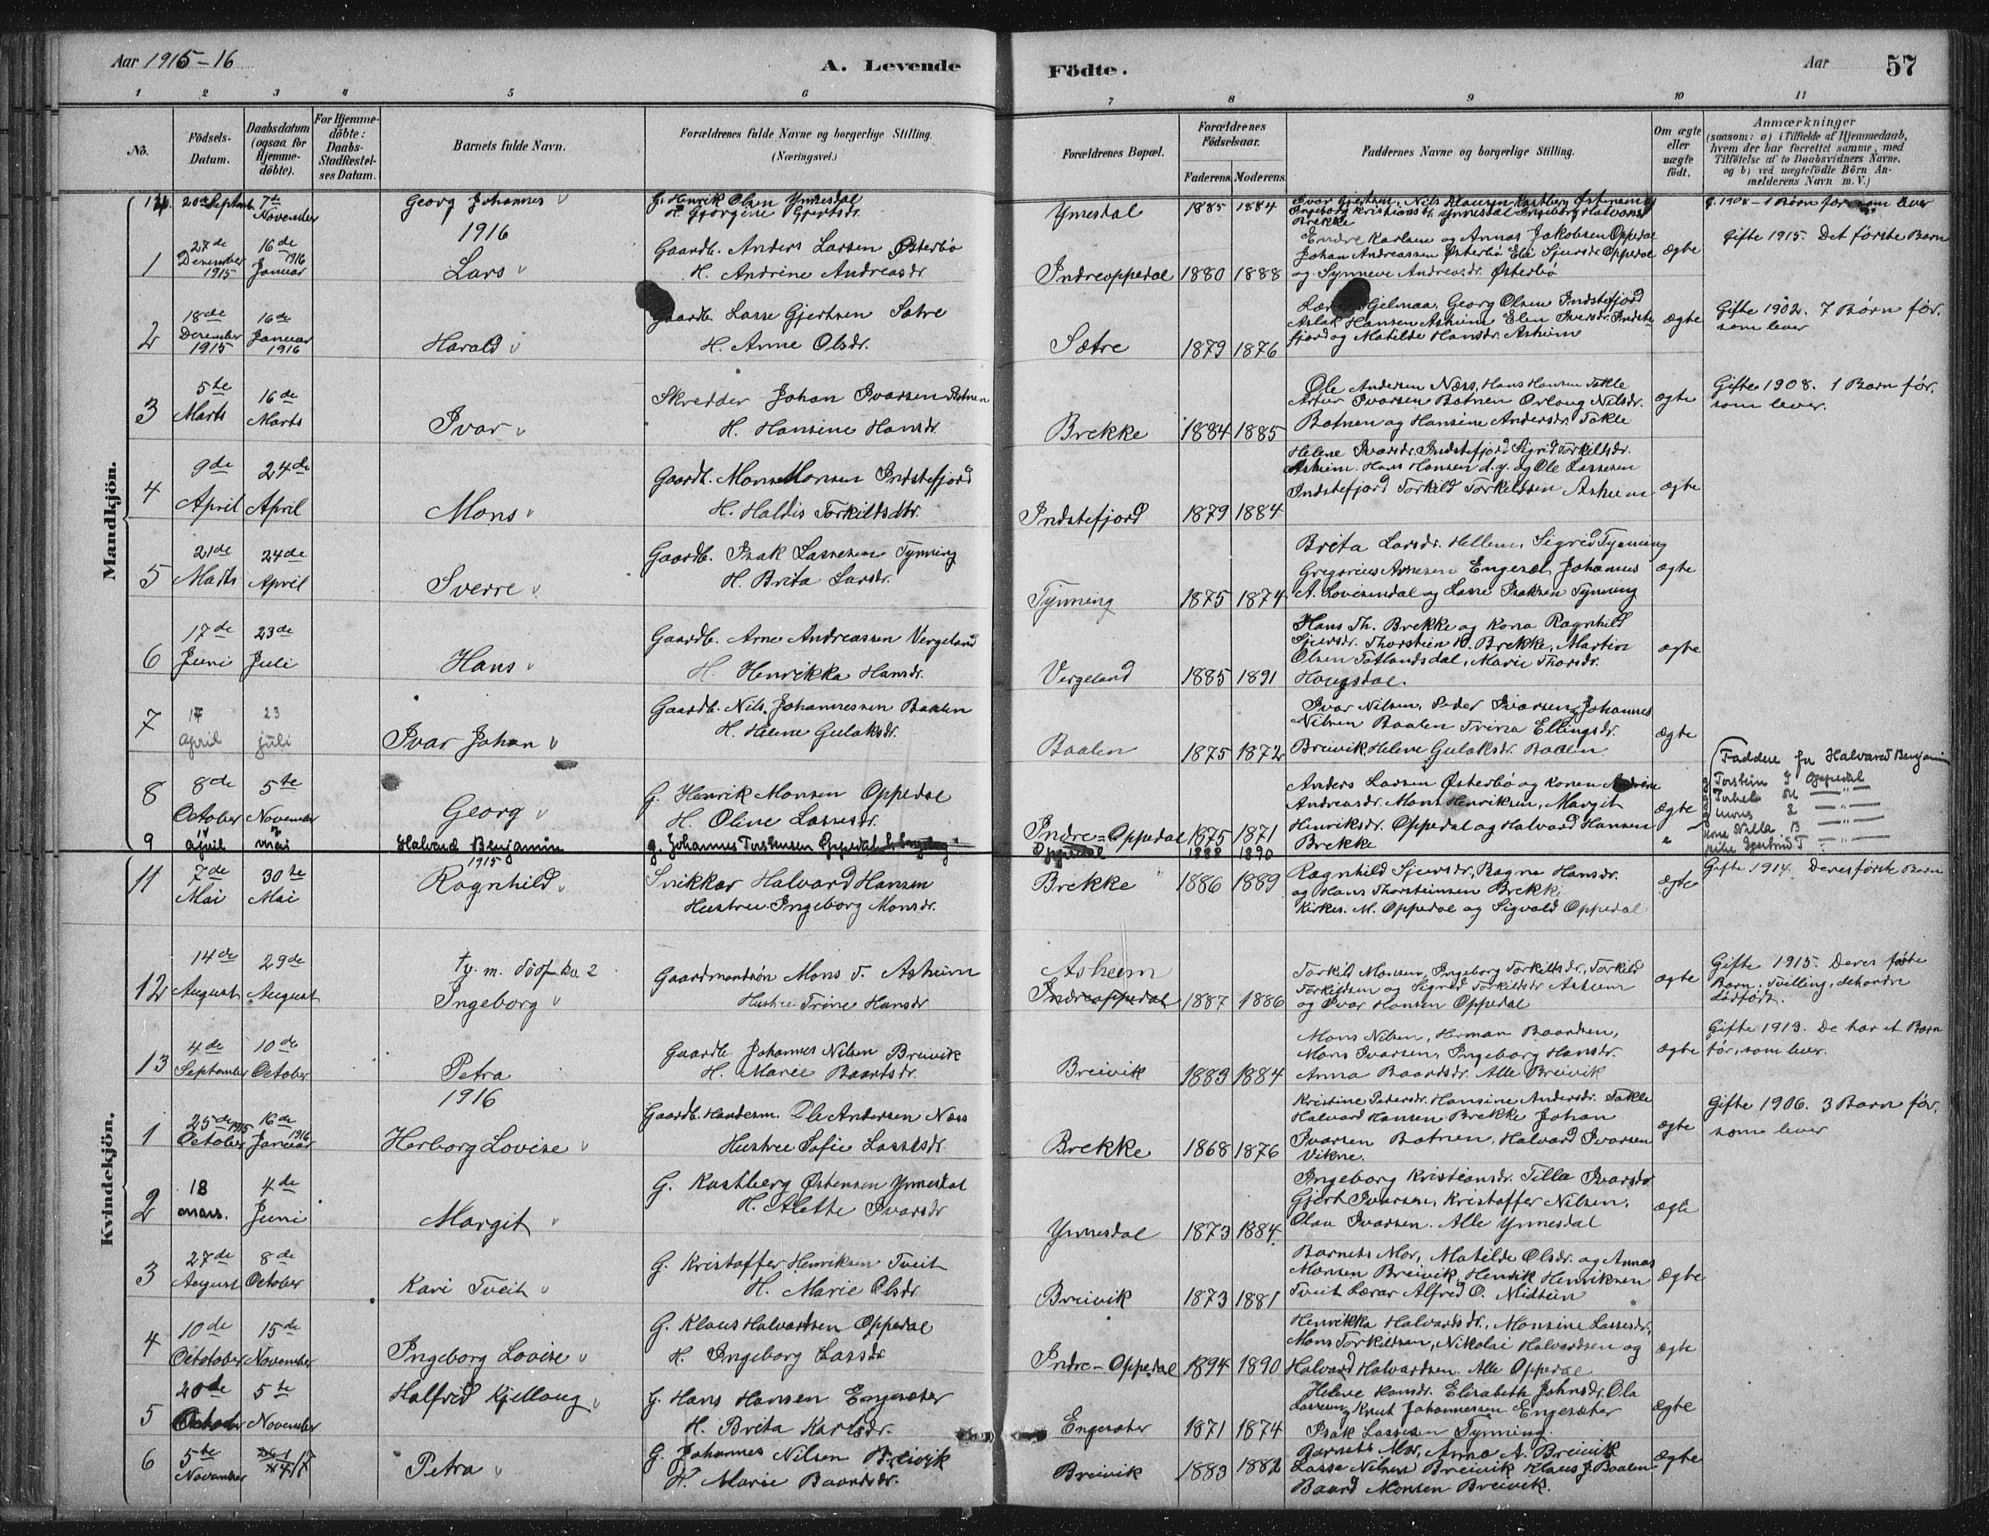 Aar 1915-16
A. Levende
Födte.
Aar
57
1 2 3 4 5 6 7 8 9 10 11
No.
Födsels-Datum.
Daabsdatum (ogsaa for Hjemmedöbte).
For Hjemmedöbte: Daabs-Stadfestelses Datum.
Barnets fulde Navn.
Forældrenes fulde Navne og borgerlige Stilling. (Næringsvei.)
Forældrenes Bopæl.
Forældrenes Födselsaar.
Faderens. Moderens.
Faddernes Navne og borgerlige Stilling.
Om ægte eller uægte födt.
Anmærkninger (saasom: a) i Tilfælde af Hjemmedaab, hvem der har forrettet samme, med Tilföielse af to Daabsvidners Navne, og b) ved uægtefödte Börn Anmelderens Navn m. V.)
Mandkjön.
14 20de Septemb 7de November Georg Johannes
G. Henrik Olsen Ynnesdal
H. Gjørgine Gjertsdr.
Ynnesdal 1885 1884
Ivar Gjertsen, Nils Klausen
Brekke
1916
1 27de December 1915 16de Januar 1916 Lars
Gaardb. Anders Larsen Østerbø
H. Andrine Andreasdr.
Indreoppedal 1880 1888
Endre Karlsen og Annas Jakobsen Oppedal
Johan Andreassen Østerbø Eli Sjursdr Oppedal
og Synneve Andreasdr. Østerbø
ægte
Gifte 1915. Det første Barn
2 18de December 1915 16de Januar 1916 Harald
Gaardb. Lasse Gjertsen Sætre
H. Anne Olsdr.
Sætre 1879 1876
Georg Olsen Indstefjord
Aslak Hansen Asheim Elen Iversdr. Indste-
fjord og Matilde Hansdr. Asheim
ægte
Gifte 1902. 7 Børn før,
som lever
3 5te Marts 16de Marts Ivar
Skredder Johan Ivarsen Botnen
H. Hansine Hansdr.
Brekke 1884 1885
Ole Andersen Næss, Hans Hansen Takle
Artur Ivarsen Botnen Orlaug Nilsdr.
Botnen og Hansine Andersdr. Takle
ægte
Gifte 1908. 1 Barn før,
som lever.
4 9de April 24de April Mons
Gaardb. Mons Monsen Indstefjord
H. Haldis Torkildsdtr.
Indstefjord 1879 1884
Helene Ivarsdr. Indstefjord Sigrid Torkildsdr.
Asheim. Hans Hansen d.y. og Ole Lassesen
Indstefjord Torkild Torkildsen Asheim
ægte
5 21de Marts 24de April Sverre
Gaardb. Isak Lassesen Tynning
H. Brita Larsdr.
Tynning 1875 1874
Brita Larsdr. Hellem, Sigrid Tynning
Gregorius Arnesen Engesæt Johannes
A. Lovisendal og Lasse Isaksen Tynning
ægte
6 17de Juni 23de Juli Hans
Gaardb. Arne Andreassen Vergeland
H. Henrikka Hansdr.
Vergeland 1885 1891
Hans Th. Brekke og Kona Ragnhild
Sjursdr. Thorstein H. Brekke, Martin
Olsen Totlandsdal, Marie Thorsdr.
Haugsdal.
ægte
7 17 april 23 juli Ivar Johan
Gaardb. Nils Johannessen Baalen
H. Helene Gulaksdr.
Baalen 1875 1872
Ivar Nilsen, Peder Ivarsen, Johannes
Nilsen Baalen Trina Ellingsdr.
Breivik Helene Gulaksdr. Baalen
ægte
8 8de October 5te November Georg
G. Henrik Monsen Oppedal
H. Oline Lassesdr.
Indre-Oppedal 1875 1871
Anders Larsen Østerbø og Konen Andrine
Andreasdr. Mons Henriksen, Margit
Henriksdr. Oppedal og Halvard Hansen
Brekke
ægte
Faddere for Halvard Benjamin
Torstein J Oppedal
9 14 april 7 mai Halvard Benjamin
g. Johannes Torsteinsen Oppedal
Oppedal 1888 1890
Kvindekjön.
1915
11 7de Mai 30te Mai Ragnhild
Snikkar Halvard Hansen
Hustru Ingeborg Monsdr.
Brekke 1886 1889
Ragnhild Sjursdr., Ragna Hansdr.
og Hans Thorsteinsen Brekke
Kirkes. M. Oppedal og Sigvald Oppedal
ægte
Gifte 1914. Deres første Barn
12 14de August 29de August Ingeborg
Gaardmandsøn Mons T. Asheim
Hustru Trine Hansdr.
Asheim
Indreoppedal 1887 1886
Torkild Monsen, Ingeborg Torkildsdr., Torkild
Torkildsen og Sigrid Torkildsdr Asheim
og Ivar Hansen Oppedal
ægte
Gifte 1915. Deres første
Barn. Tvilling, de andre
dødfødt.
13 4de September 10de October Petra
Gaardb. Johannes Nilsen Breivik
H. Marie Baardsdr.
Breivik 1883 1884
Mons Nilsen, Herman Baardsen,
Mons Ivarsen, Ingeborg Hansdr.
Anna Baardsdr. Alle Breivik
ægte
Gifte 1913. De har et Barn
før, som lever.
1916
1 25de October 1915 16de Januar 1916 Herborg Lovise
Gaardb. Handesm. Ole Andersen Næss
Hustru Sofie Lassesdr.
Brekke 1868 1876
Kristine Pedersdr. Hansine Andersdr. Takle
Halvard Hansen Brekke Johan
Ivarsen Botnen, Halvard Ivarsen
Vikne.
ægte
Gifte 1906. 3 Barn før,
some lever
2 18 mars. 4de Juni Margit
G. Kastberg Østensen Ynnesdal
H. Alette Ivarsdr
Ynnesdal 1873 1884
Ingeborg Kristiansdr. Tilla Ivarsdr
Gjert Ivarsen, Kristoffer Nilsen,
Olav Ivarsen. Alle Ynnesdal
ægte
3 27de August 8de October Kari Tveit
G. Kristoffer Henriksen Tveit
H. Marie Olsdr
Breivik 1873 1881
Barnets Mor, Matilde Olsdr. og Annas
Monsen Breivik, Henrik Henriksen
Tveit Lærar Alfred O. Midtun
ægte
4 10de Octotober 15de November Ingeborg Lovise
G. Klaus Halvardsen Oppedal
H. Ingeborg Larsdr
Indre-Oppedal 1894 1890
Henrikka Halvardsdr., Monsine Lassesdr.,
Mons Torkildsen, Nikolai Halvardsen og
Halvard Halvardsen. Alle Oppedal
ægte
5 20de October 5te November Halfrid Kjellaug
G. Hans Hansen Engesæter
H. Brita Karlsdr.
Engesæter 1871 1874
Helene Hansdr. Elisabeth Johnsdr. Ola
Lassen, Knut Johannessen Engesæter
Isak Lassesen Tynning.
ægte
6 5te November Petra
G. Johannes Nilsen Breivik
H. Marie Baardsdr.
Breivik 1883 1882
Barnets Mor, Anna A. Breivik
Lasse Nilsen Breivik Klaus J Baalen
Baard Monsen Breivik.
ægte